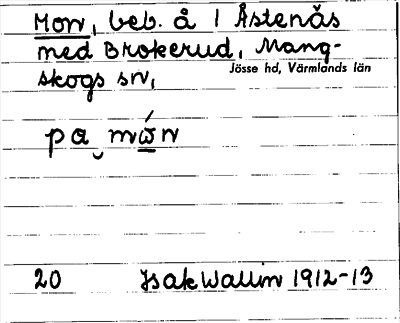 Mon, beb. å 1 Åstenäs
med Brokerud, Mang-
skogs sn,
Jösse hd, Värmlands län
pa‿mώ̲n
20 Isak Wallin 1912-13